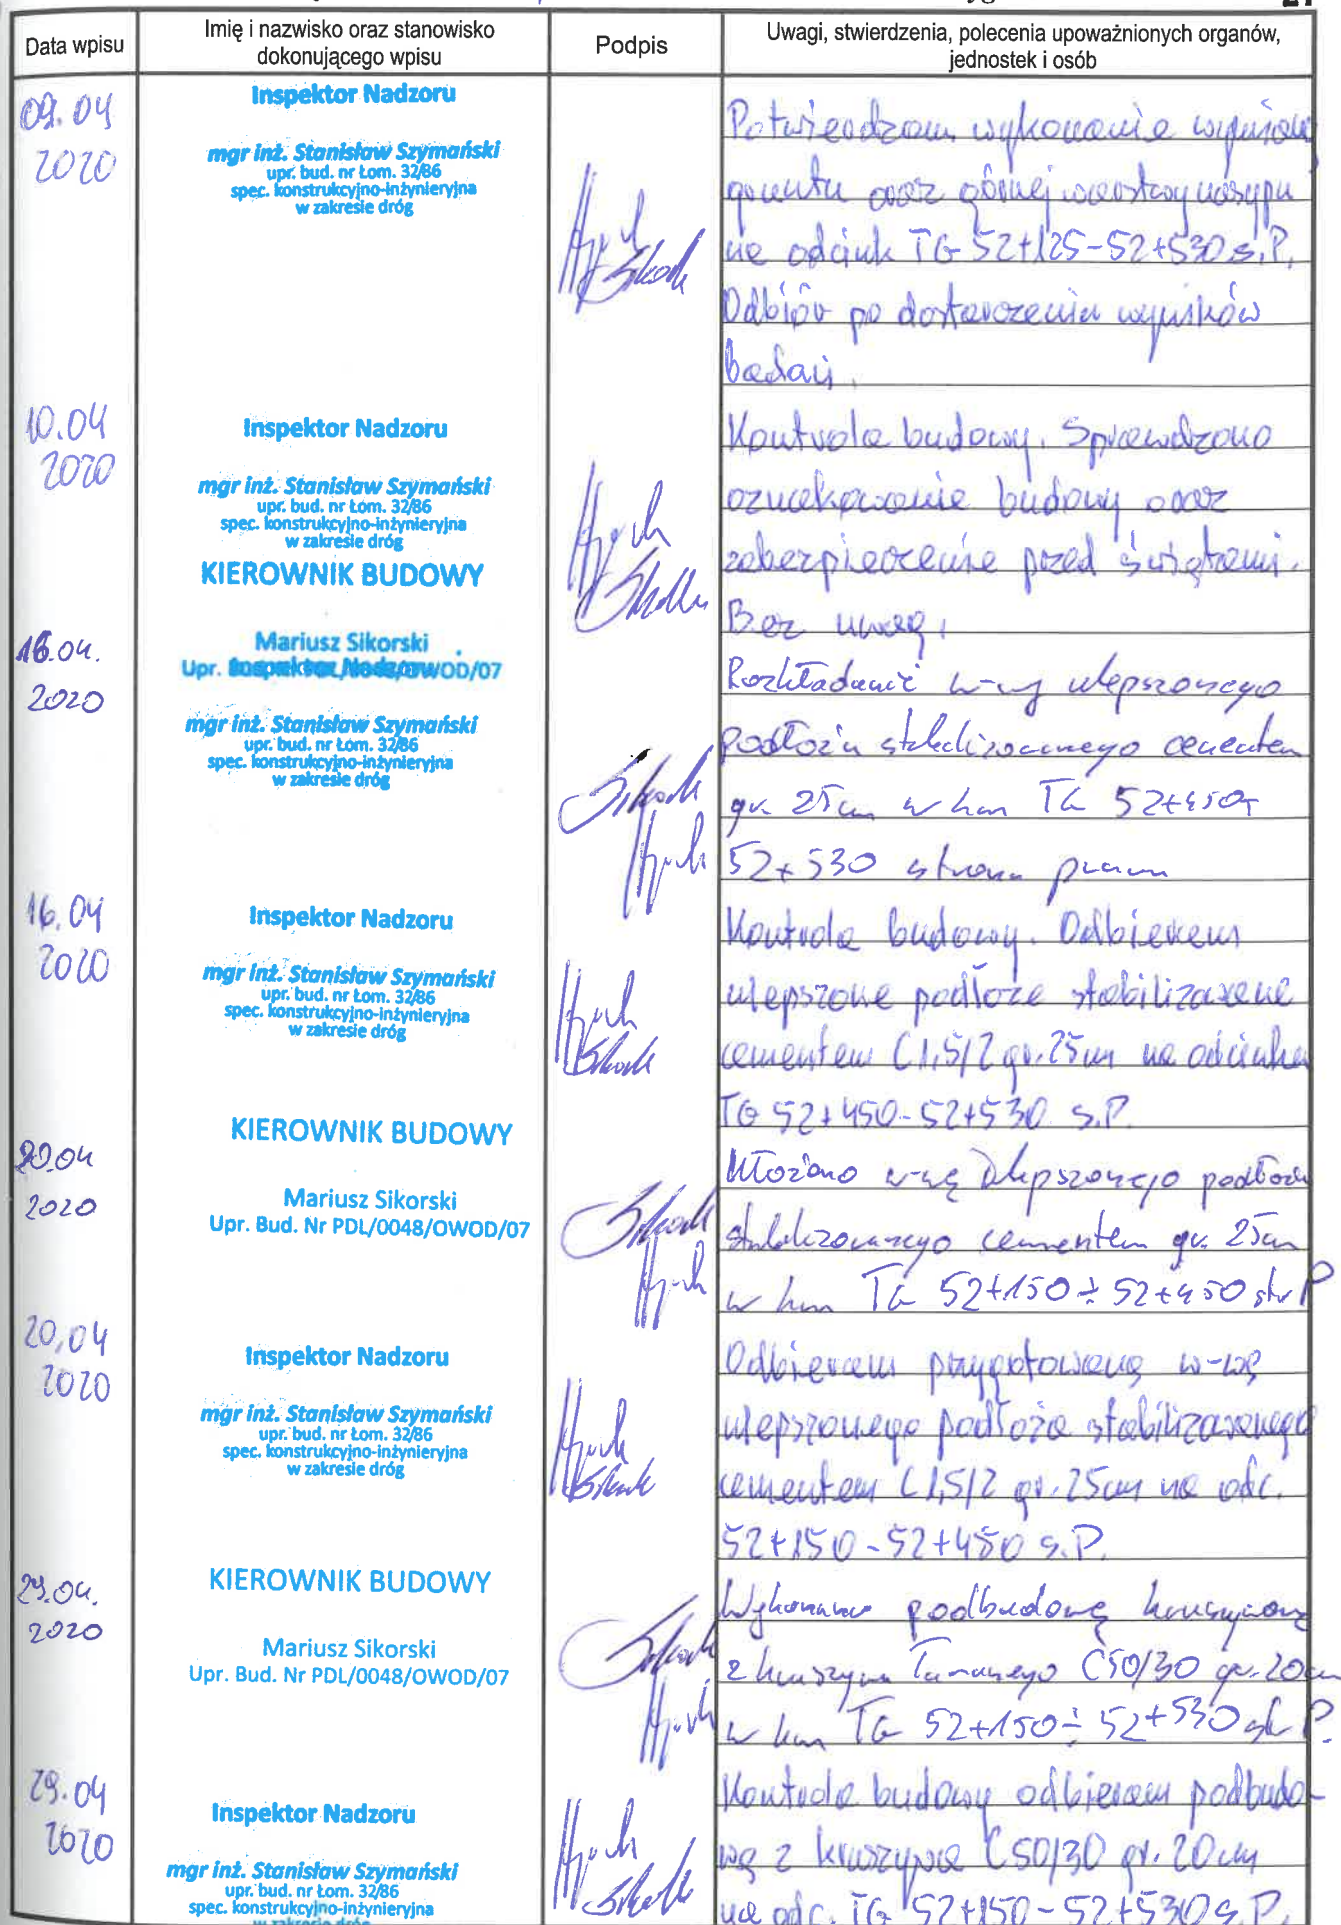 21
Data wpisu
Imię i nazwisko oraz stanowisko
dokonującego wpisu
Podpis
Uwagi, stwierdzenia, polecenia upoważnionych organów,
jednostek i osób
09.04
2020
Inspektor Nadzoru
mgr inż. Stanisław Szymański
upr. bud. nr Łom. 32/86
spec. konstrukcyjno-inżynieryjna
w zakresie dróg
Potwierdzam wykonanie wymiany
gruntu oraz górnej warstwy nasypu
na odcink TG 52+125-52+530 s.P.
Odbiór po dostarczeniu wyników
badań.
10.04
2020
Inspektor Nadzoru
mgr inż. Stanisław Szymański
upr. bud. nr Łom. 32/86
spec. konstrukcyjno-inżynieryjna
w zakresie dróg
Kontrola budowy. Sprawdzono
oznakowanie budowy oraz
zabezpieczenie przed świętami.
Bez uwag.
KIEROWNIK BUDOWY
16.04.
2020
Mariusz Sikorski
Upr. /OWOD/07
Inspektor Nadzoru
mgr inż. Stanisław Szymański
upr. bud. nr Łom. 32/86
spec. konstrukcyjno-inżynieryjna
w zakresie dróg
Rozkładanie w-wy ulepszonego
podłoża stabilizowanego cementem
gr. 25cm w km TG 52+450÷
52+530 strona prawa
16.04
2020
Inspektor Nadzoru
mgr inż. Stanisław Szymański
upr. bud. nr Łom. 32/86
spec. konstrukcyjno-inżynieryjna
w zakresie dróg
Kontrola budowy. Odbieram
ulepszone podłoże stabilizowane
cementem C1,5/2 gr. 25cm na odcinku
TG 52+450-52+530 s.P.
20.04
2020
KIEROWNIK BUDOWY
Mariusz Sikorski
Upr. Bud. Nr PDL/0048/OWOD/07
Ułożono w-wę ulepszonego podłoża
stabilizowanego cementem gr. 25cm
w km TG 52+150÷52+450 str P
20.04
2020
Inspektor Nadzoru
mgr inż. Stanisław Szymański
upr. bud. nr Łom. 32/86
spec. konstrukcyjno-inżynieryjna
w zakresie dróg
Odbieram przygotowaną w-wę
ulepszonego podłoża stabilizowanego
cementem C1,5/2 gr. 25cm na odc.
52+150-52+450 s.P.
29.04.
2020
KIEROWNIK BUDOWY
Mariusz Sikorski
Upr. Bud. Nr PDL/0048/OWOD/07
Wykonano podbudowę kruszywową
z kruszywa łamanego C50/30 gr. 20cm
w km TG 52+150÷52+530 str P.
29.04
2020
Inspektor Nadzoru
mgr inż. Stanisław Szymański
upr. bud. nr Łom. 32/86
spec. konstrukcyjno-inżynieryjna
w zakresie dróg
Kontrola budowy odbieram podbudo-
wę z kruszywa C50/30 gr. 20cm
na odc. TG 52+150-52+530 s.P.